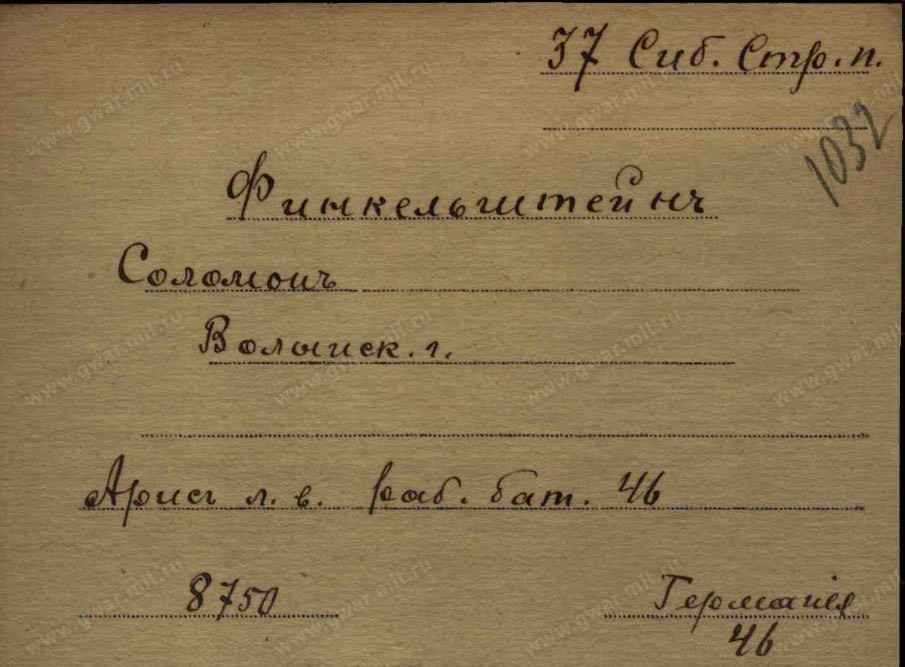 37 Сиб. Стр. п.
1032
Финкельштейнъ
Соломонъ
Волынск. г.
Арисъ л. в. раб. бат. 46
8750
Германія
46
www.gwar.mil.ru